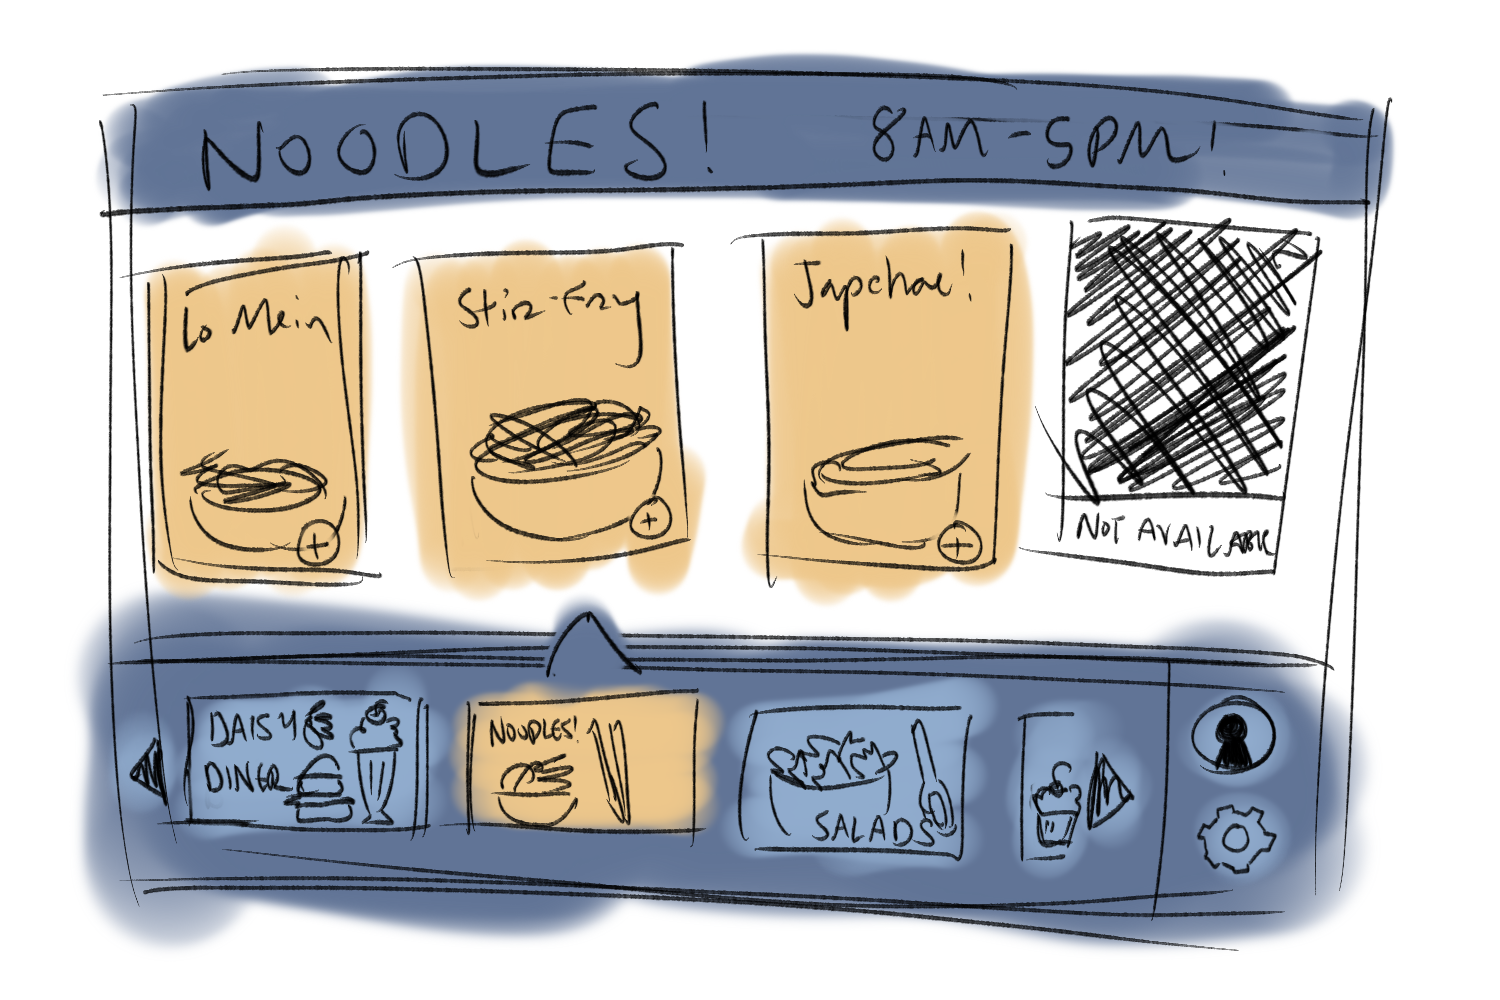 NOODLES! 8AM-5PM!
Lo Mein
Stir-Fry
Japchae!
NOT AVAILABLE
DAISY
DINER
NOODLES!
SALADS